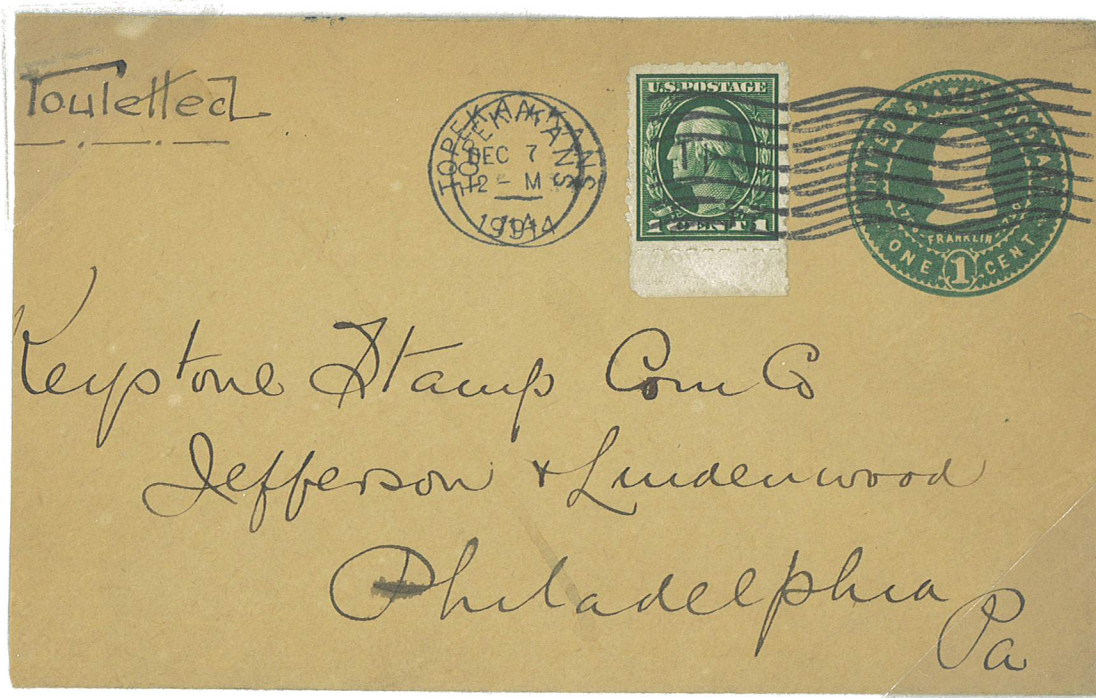 Rouletted
TOPEKA, KANS
DEC 7
12 – M
1914
U.S. POSTAGE
1 CENT 1
UNITED STATES POSTAGE
FRANKLIN
ONE 1 CENT
Keystone Stamp Com Co
Jefferson + Lindenwood
Philadelphia
Pa